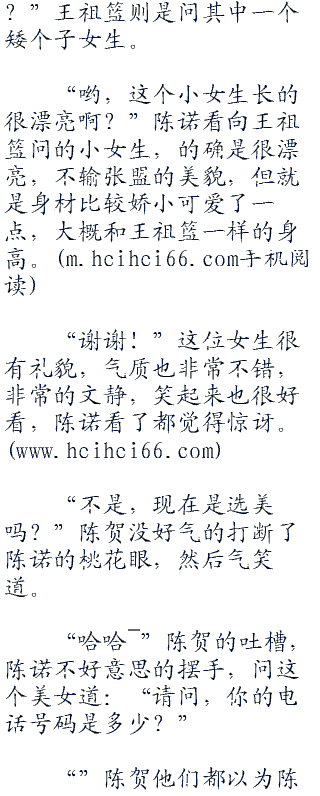 ？”王祖篮则是问其中一个
矮个子女生。
“哟，这个小女生长的
很漂亮啊？”陈诺看向王祖
篮问的小女生，的确是很漂
亮，不输张盟的美貌，但就
是身材比较娇小可爱了一
点，大概和王祖篮一样的身
高。(m.hcihci66.com手机阅
读)
“谢谢！”这位女生很
有礼貌，气质也非常不错，
非常的文静，笑起来也很好
看，陈诺看了都觉得惊讶。
(www.hcihci66.com)
“不是，现在是选美
吗？”陈贺没好气的打断了
陈诺的桃花眼，然后气笑
道。
“哈哈¯”陈贺的吐槽，
陈诺不好意思的摆手，问这
个美女道：“请问，你的电
话号码是多少？”
“”陈贺他们都以为陈